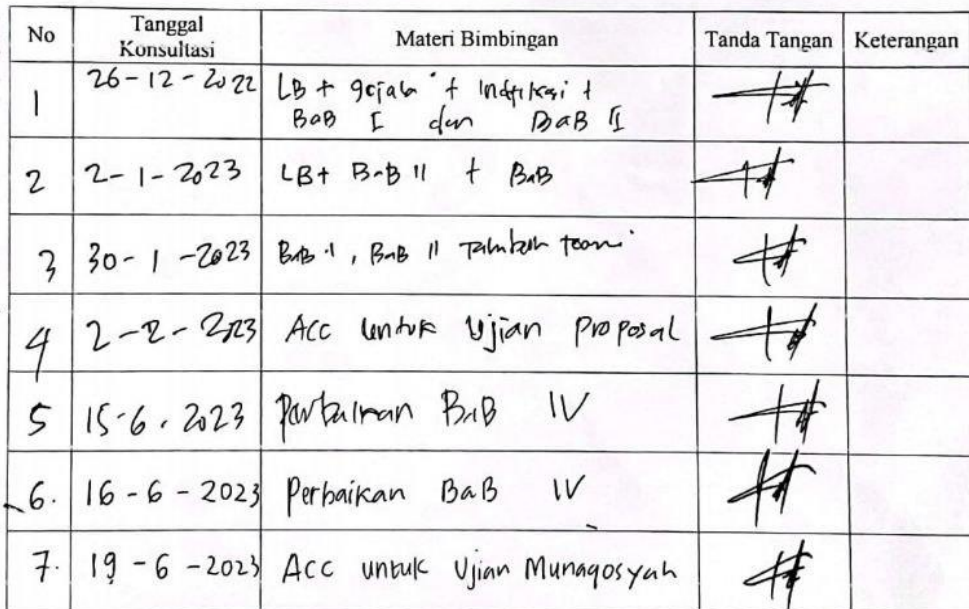 No Tanggal Konsultasi Materi Bimbingan Tanda Tangan Keterangan
1 26-12-2022 LB + gejala + Indifikasi +
BaB I dan BaB II
2 2-1-2023 LB + BaB II + BaB
3 30-1-2023 BaB I, BaB II Tambah teori
4 2-2-2023 Acc untuk Ujian Proposal
5 15-6-2023 Perbaikan BaB IV
6. 16-6-2023 Perbaikan BaB IV
7. 19-6-2023 Acc untuk Ujian Munaqosyah